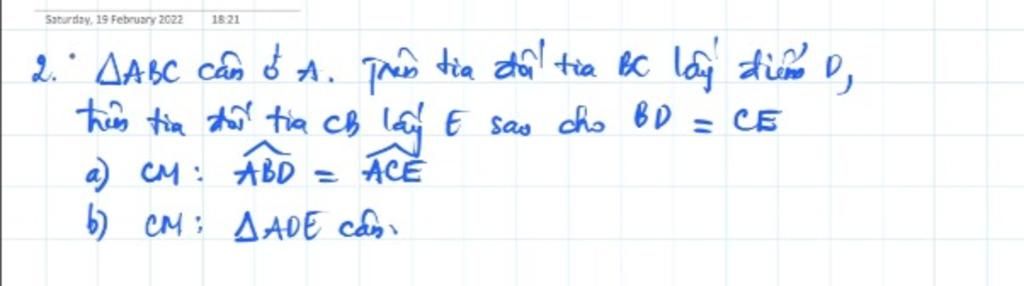 Saturday, 19 February 2022 18:21
2. ΔABC cân ở A. Trên tia đối tia BC lấy điểm D,
trên tia đối tia CB lấy E sao cho BD = CE
a) CM: \widehat{ABD} = \widehat{ACE}
b) CM: ΔADE cân.